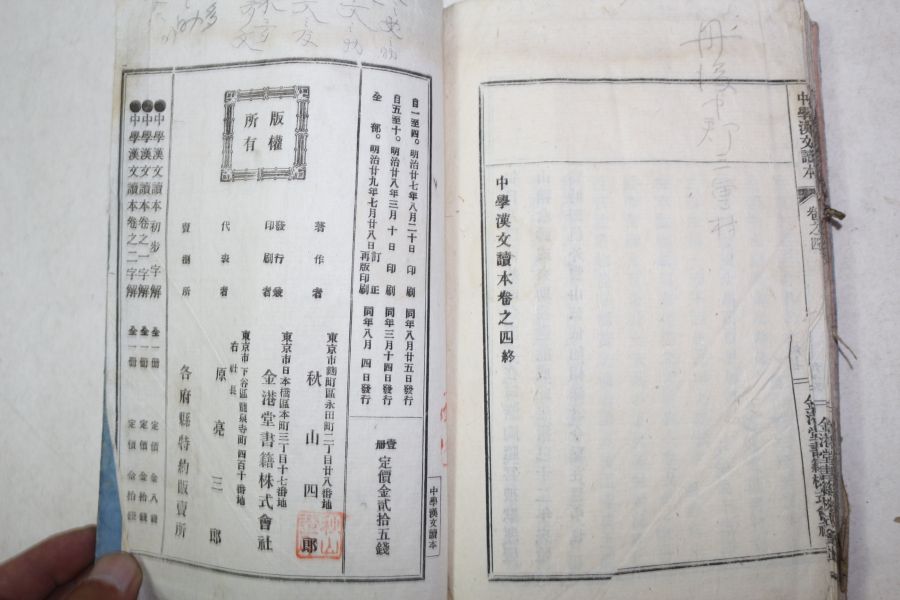 中學漢文讀本
卷之四
金港堂書籍株式會社
丹後中郡三重村
中學漢文讀本卷之四終
自一至四。明治廿七年八月二十日印刷 同年八月廿五日發行
自五至十。明治廿八年三月十日印刷 同年三月十四日發行
全部。明治廿九年七月廿八日訂正再版印刷 同年八月四日發行
壹册 定價金貳拾五錢
中學漢文讀本
版權所有
著作者 東京市麴町區永田町二丁目廿八番地
秋山四郎
發行兼印刷者 東京市日本橋區本町三丁目十七番地
金港堂書籍株式會社
代表者 東京市下谷區龍泉寺町四百十番地
右社長 原亮三郎
賣捌所 各府縣特約販賣所
●中學漢文讀本初步字解 全一册 定價金八錢
●中學漢文讀本卷之一字解 全一册 定價金拾錢
●中學漢文讀本卷之二字解 全一册 定價金拾錢